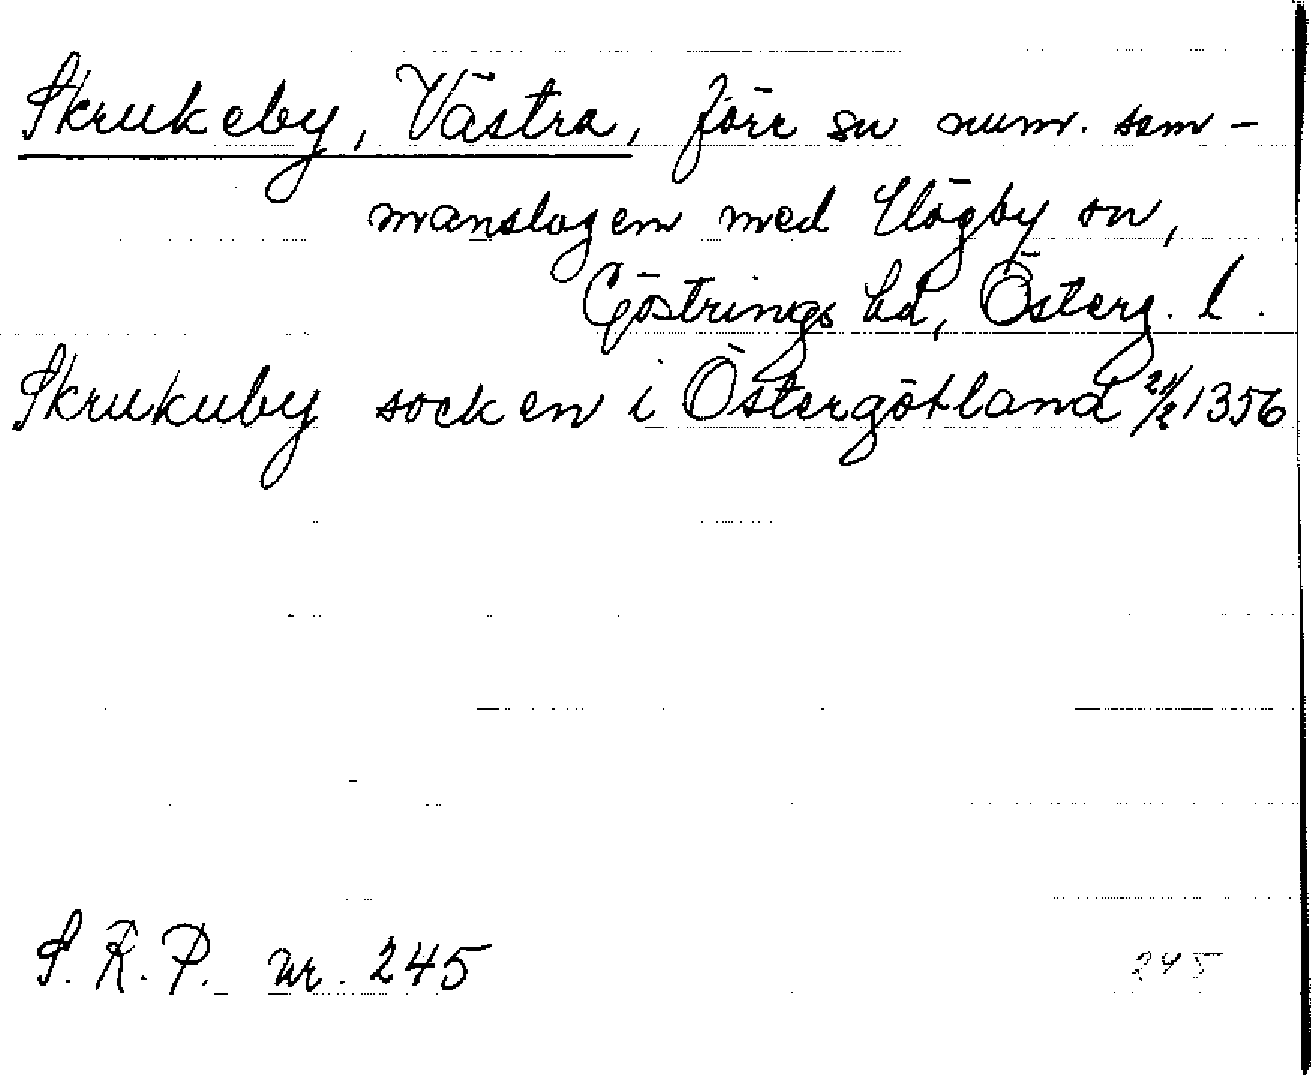 Skrukeby, Västra, förr sn num. sam-
manslagen med Högby sn,
Göstrings hd, Österg. l.
Skrukuby socken i Östergötland 21/2 1356
S. R. P. nr. 245
245